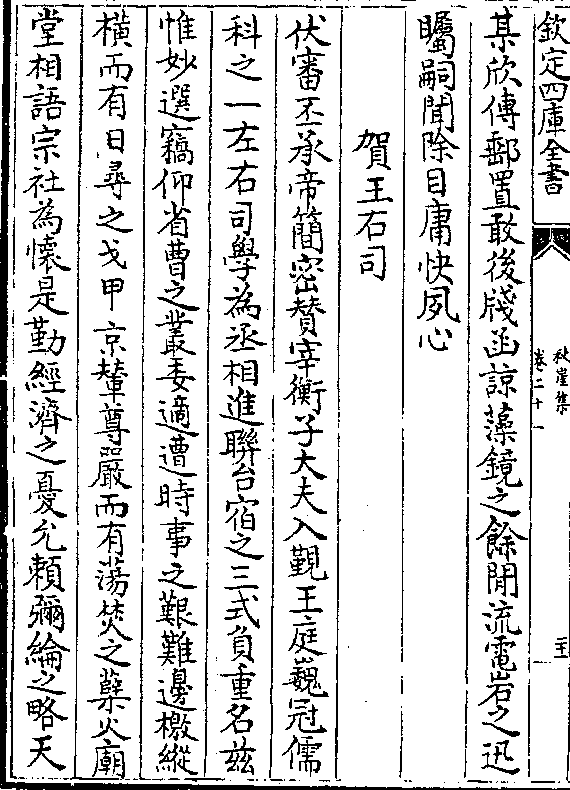 欽定四庫全書
秋崖集
卷二十一
某欣傳郵置敢後牋函諒藻鏡之餘閒流電岩之迅
矚嗣聞除目庸快夙心
賀王右司
伏審丕承帝簡密賛宰衡子大夫入覲王庭巍冠儒
科之一左右司學為丞相進聯台宿之三式負重名兹
惟妙選竊仰省曹之叢委適遭時事之艱難邊檄縱
橫而有日尋之戈甲京輦尊嚴而有蕩焚之蘖火廟
堂相語宗社為懷是勤經濟之憂允頼彌綸之略天